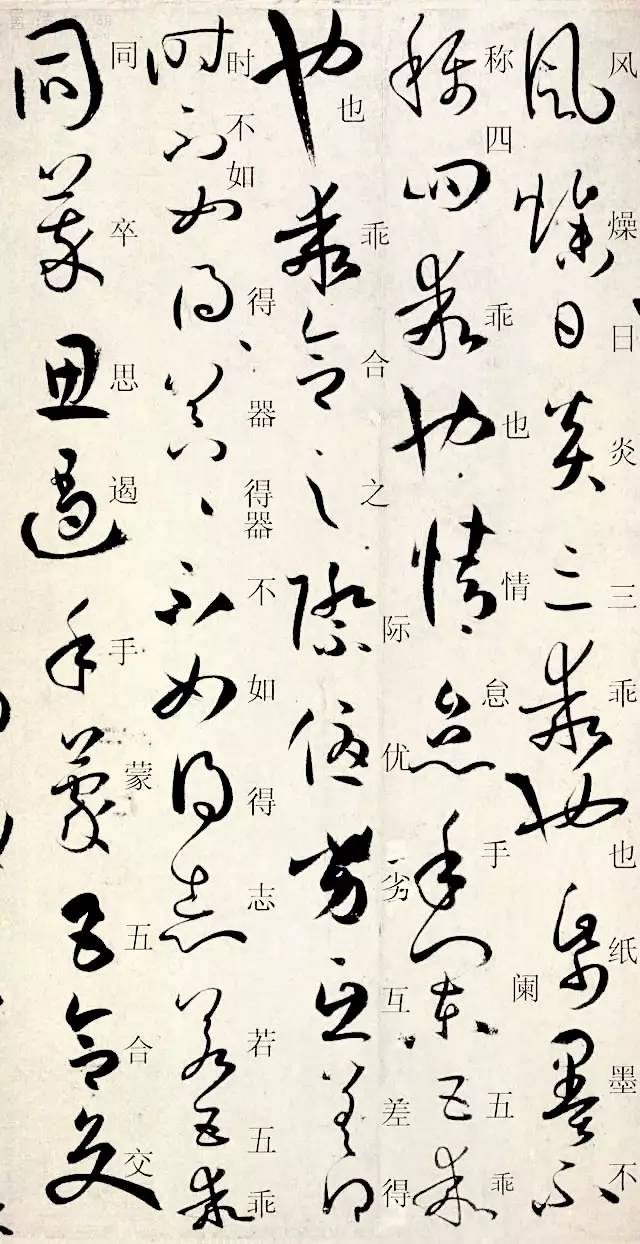 风燥日炎三乖也纸墨不
称四乖也情怠手阑五乖
也乖合之际优劣互差得
时不如得器得器不如得志若五乖
同卒思遏手蒙五合交